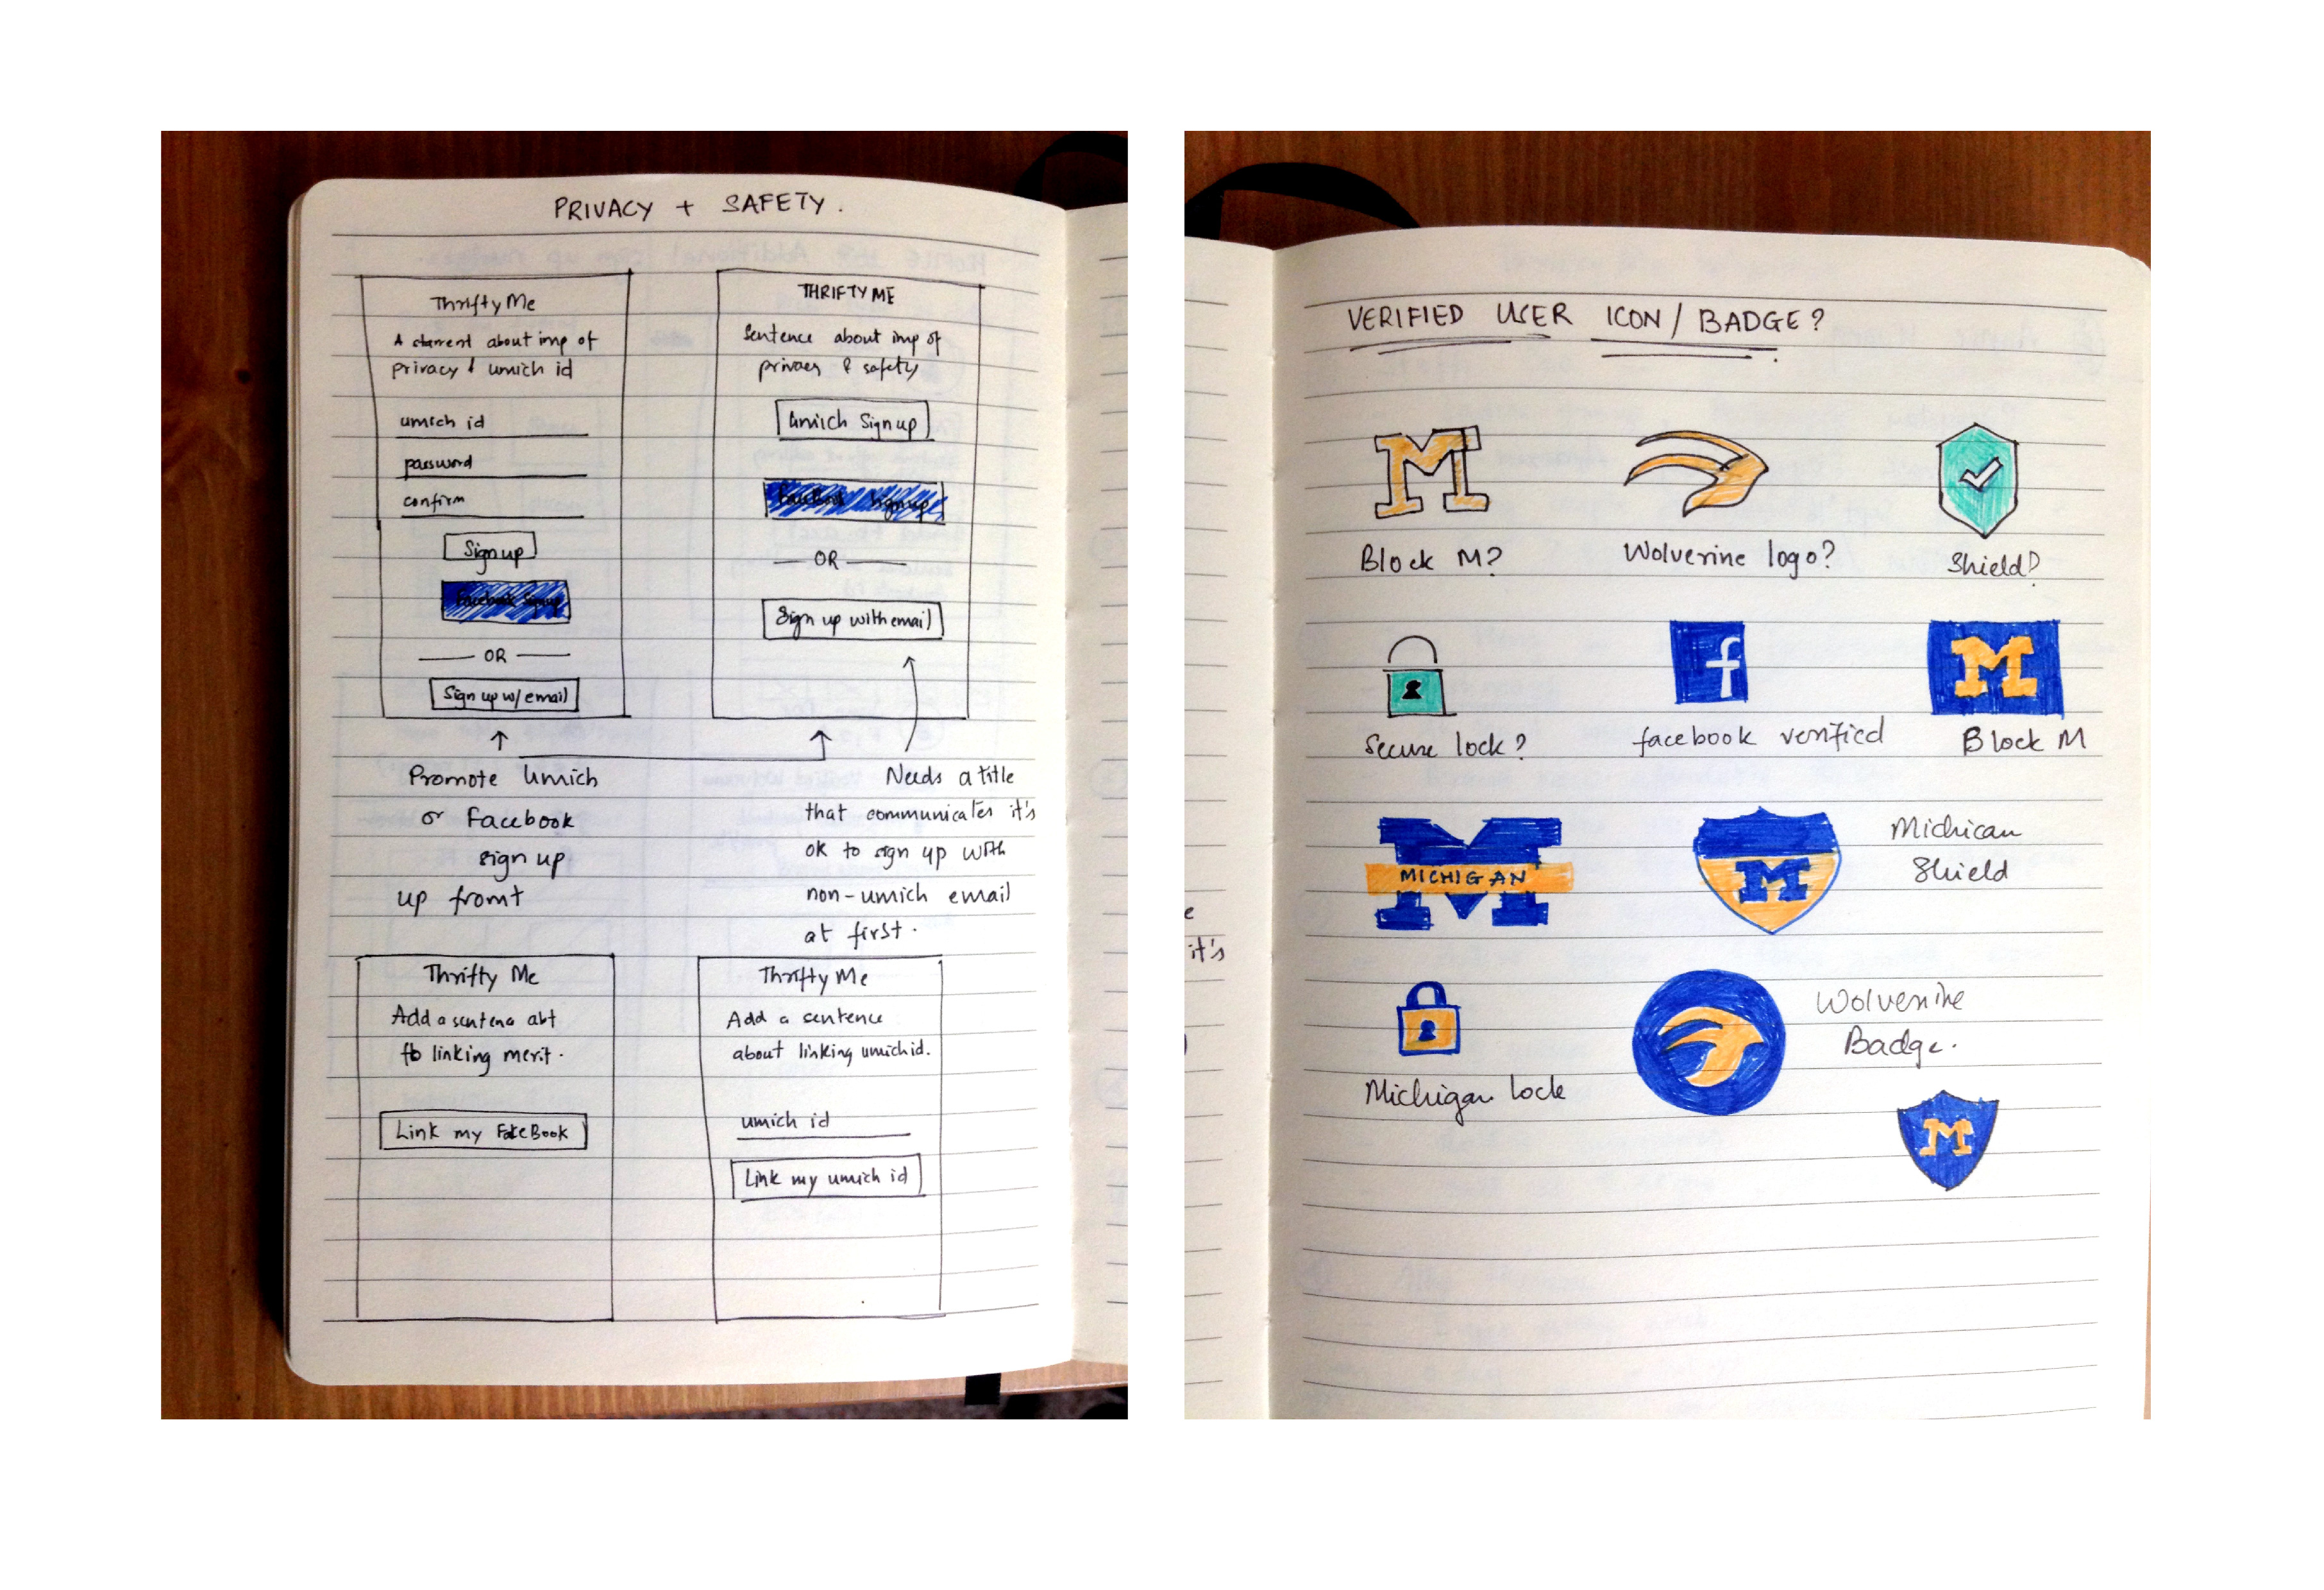 PRIVACY + SAFETY.
ThriftyMe
A about imp of
privacy & umich id
umich id
password
confirm
Sign up
Facebook Signup
OR
Sign up w/ email
THRIFTY ME
Sentence about imp of
privacy & safety
Umich Sign up
FaceBook Signup
OR
Sign up with email
Promote Umich
or Facebook
sign up
up front
Needs a title
that communicates it's
ok to sign up with
non-umich email
at first.
Thrifty Me
Add a sentence abt
fb linking merit.
Link my FaceBook
Thrifty Me
Add a sentence
about linking umich id.
umich id
Link my umich id
e
it's
VERIFIED USER ICON / BADGE?
M
Block M?
Wolverine logo?
Shield?
Secure lock?
f
facebook verified
M
Block M
M
MICHIGAN
M
Michigan
Shield
Michigan lock
Wolverine
Badge.
M